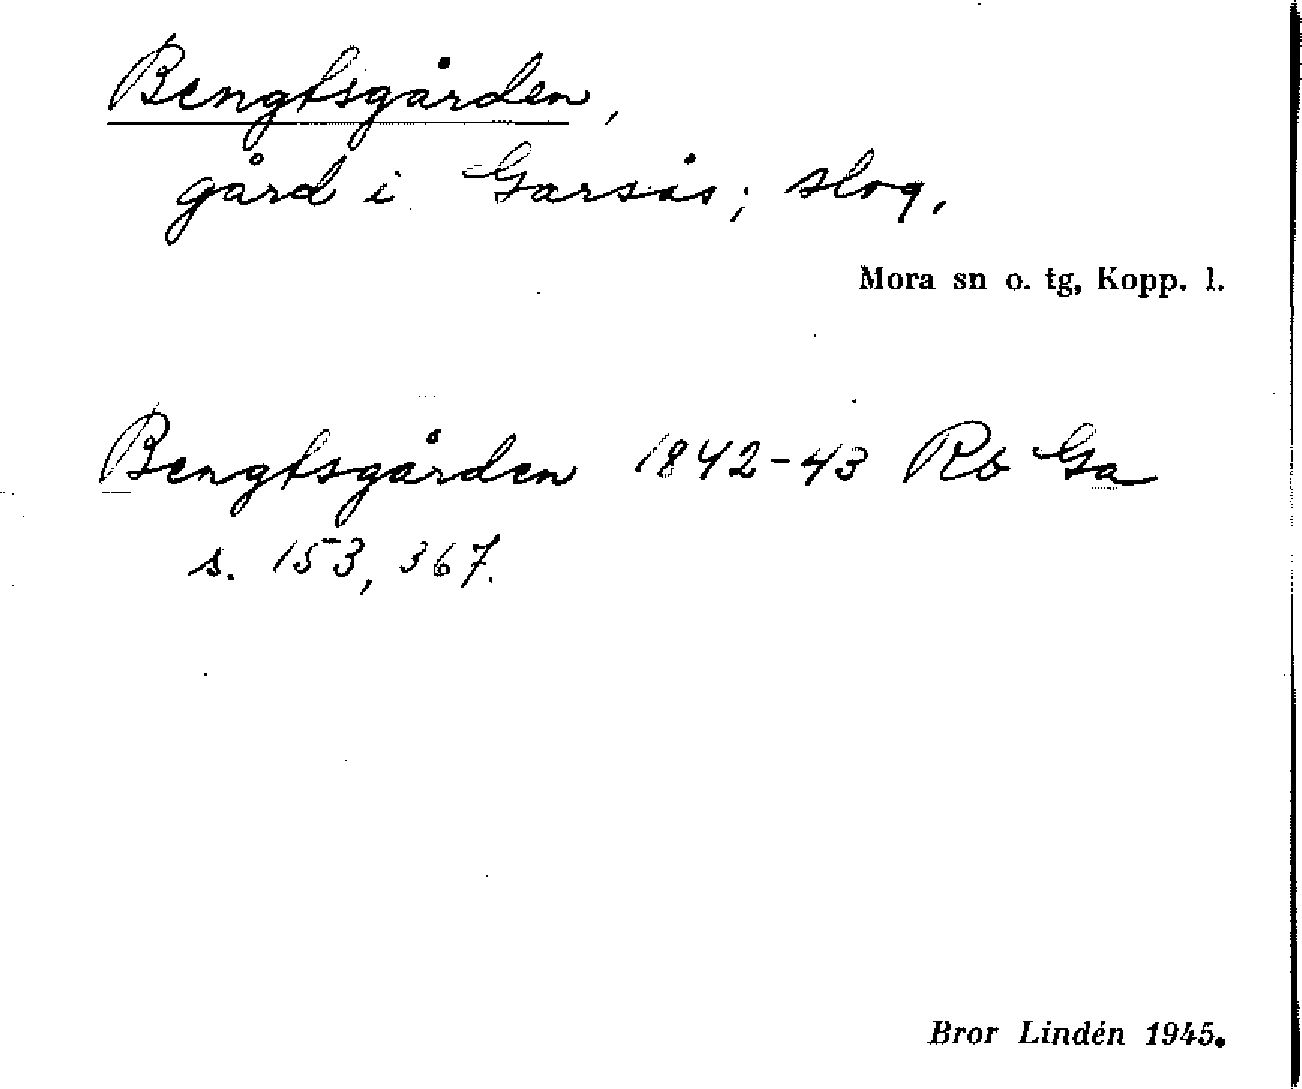 Bengtsgården,
gård i Garsås; slog,
Mora sn o. tg, Kopp. l.
Bengtsgården 1842-43 Rb Ga
s. 153, 367.
Bror Lindén 1945.